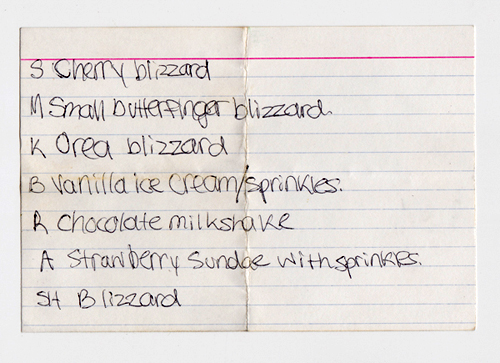 S Cherry blizzard
M Small butterfinger blizzard.
K Orea blizzard
B Vanilla ice cream/sprinkles.
R Chocolate milkshake
A Strawberry Sundae with sprinkles.
SH Blizzard